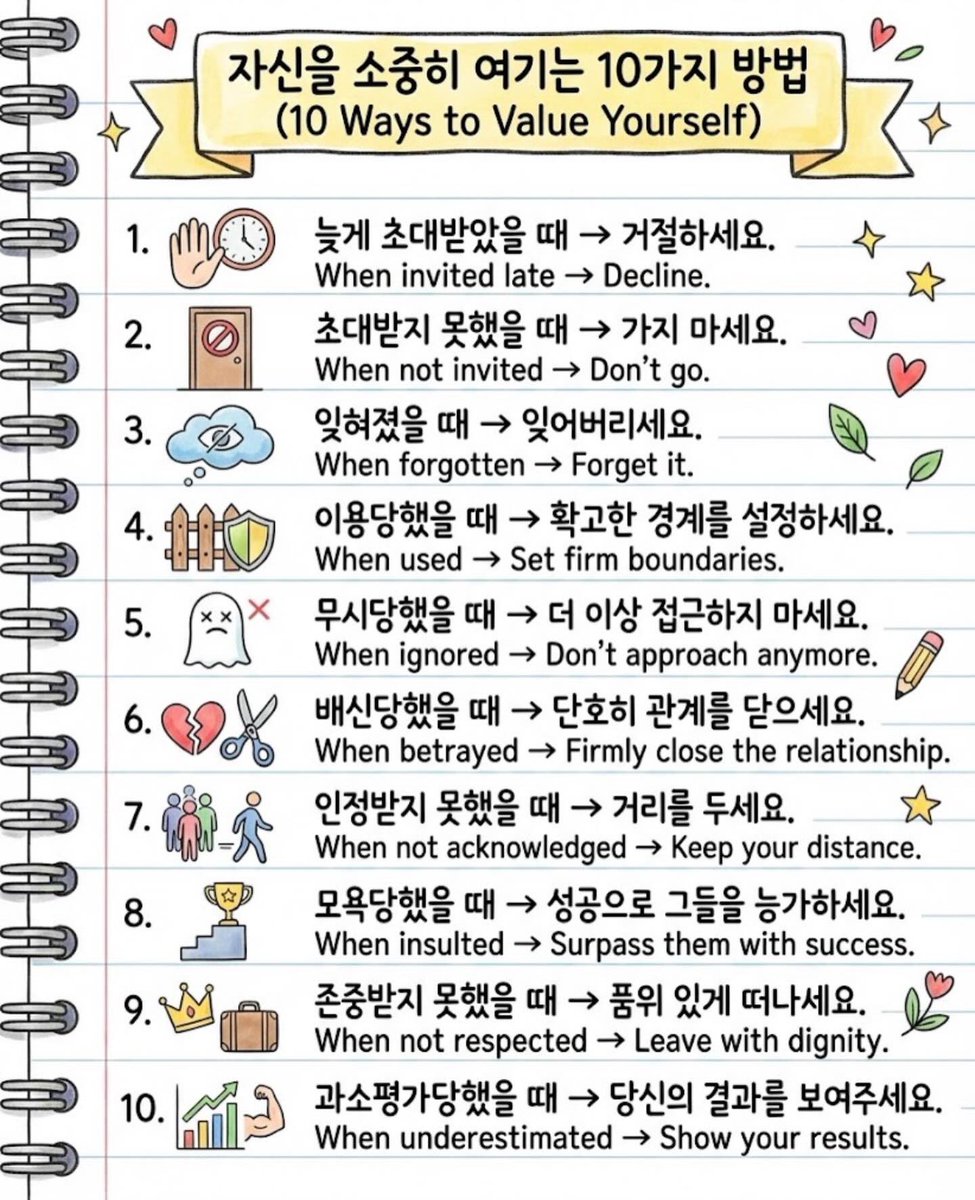 자신을 소중히 여기는 10가지 방법
(10 Ways to Value Yourself)
1. 늦게 초대받았을 때 → 거절하세요.
When invited late → Decline.
2. 초대받지 못했을 때 → 가지 마세요.
When not invited → Don't go.
3. 잊혀졌을 때 → 잊어버리세요.
When forgotten → Forget it.
4. 이용당했을 때 → 확고한 경계를 설정하세요.
When used → Set firm boundaries.
5. 무시당했을 때 → 더 이상 접근하지 마세요.
When ignored → Don't approach anymore.
6. 배신당했을 때 → 단호히 관계를 닫으세요.
When betrayed → Firmly close the relationship.
7. 인정받지 못했을 때 → 거리를 두세요.
When not acknowledged → Keep your distance.
8. 모욕당했을 때 → 성공으로 그들을 능가하세요.
When insulted → Surpass them with success.
9. 존중받지 못했을 때 → 품위 있게 떠나세요.
When not respected → Leave with dignity.
10. 과소평가당했을 때 → 당신의 결과를 보여주세요.
When underestimated → Show your results.